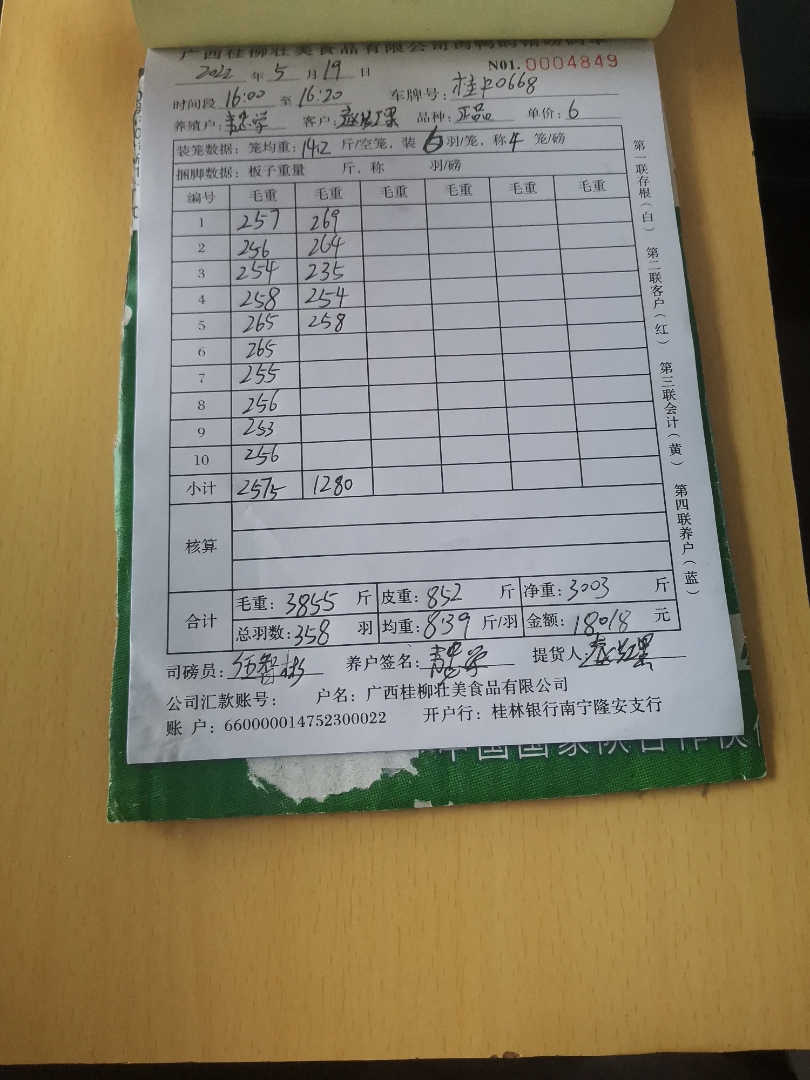 广西桂柳壮美食品有限公司肉鸭销
N01. 0004849
2022 年 5 月 19 日
时间段 16:00 至 16:20 车牌号: 桂R0668
养殖户: 客户: 品种: 正品 单价: 6
装笼数据: 笼均重: 14.2 斤/空笼, 装 6 羽/笼, 称 4 笼/磅
捆脚数据: 板子重量 斤, 称 羽/磅
编号 毛重 毛重 毛重 毛重 毛重 毛重
1 257 269
2 256 264
3 254 235
4 258 254
5 265 258
6 265
7 255
8 256
9 253
10 256
小计 2575 1280
核算
合计 毛重: 3855 斤 皮重: 852 斤 净重: 3003 斤
总羽数: 358 羽 均重: 8.39 斤/羽 金额: 18018 元
司磅员: 养户签名: 提货人:
公司汇款账号: 户名: 广西桂柳壮美食品有限公司
账 户: 660000014752300022 开户行: 桂林银行南宁隆安支行
第一联存根(白) 第二联客户(红) 第三联会计(黄) 第四联养户(蓝)
中国国家队合作伙伴